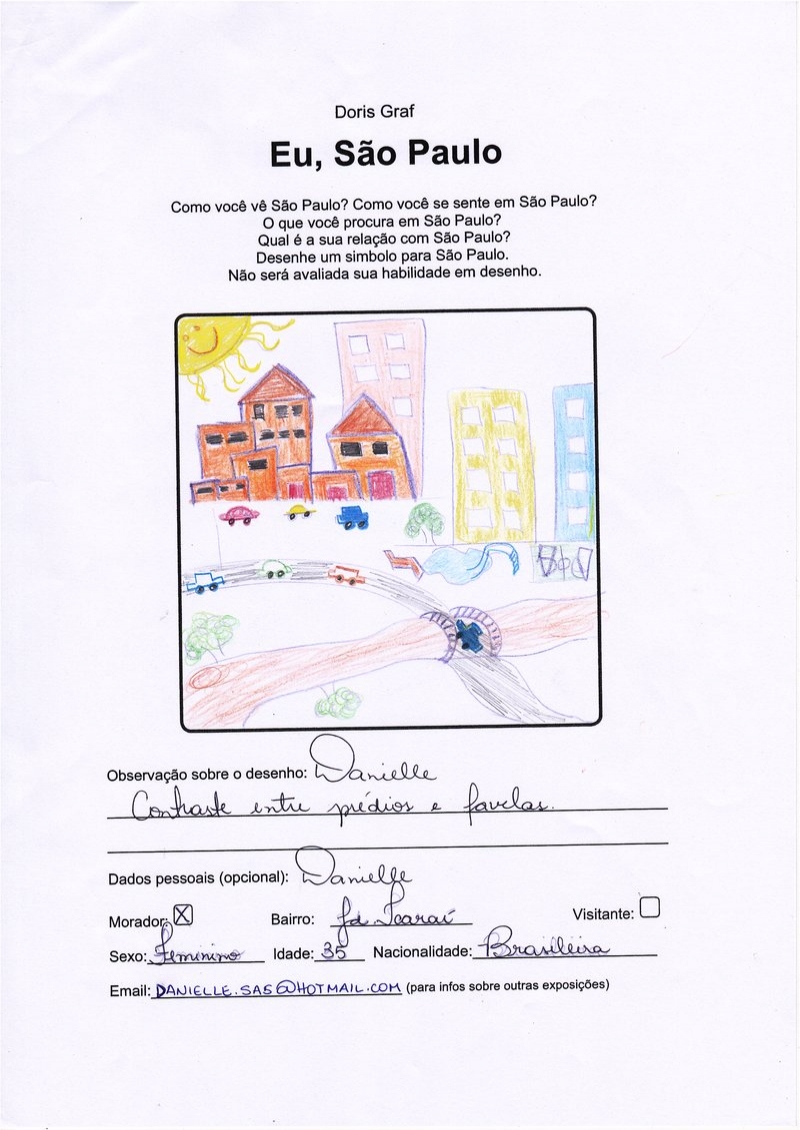 Doris Graf
Eu, São Paulo
Como você vê São Paulo? Como você se sente em São Paulo?
O que você procura em São Paulo?
Qual é a sua relação com São Paulo?
Desenhe um simbolo para São Paulo.
Não será avaliada sua habilidade em desenho.
Observação sobre o desenho: Danielle
Contraste entre prédios e favelas.
Dados pessoais (opcional): Danielle
Morador: X Bairro: Jd Icaraí Visitante:
Sexo: Feminino Idade: 35 Nacionalidade: Brasileira
Email: DANIELLE.SAS@HOTMAIL.COM (para infos sobre outras exposições)